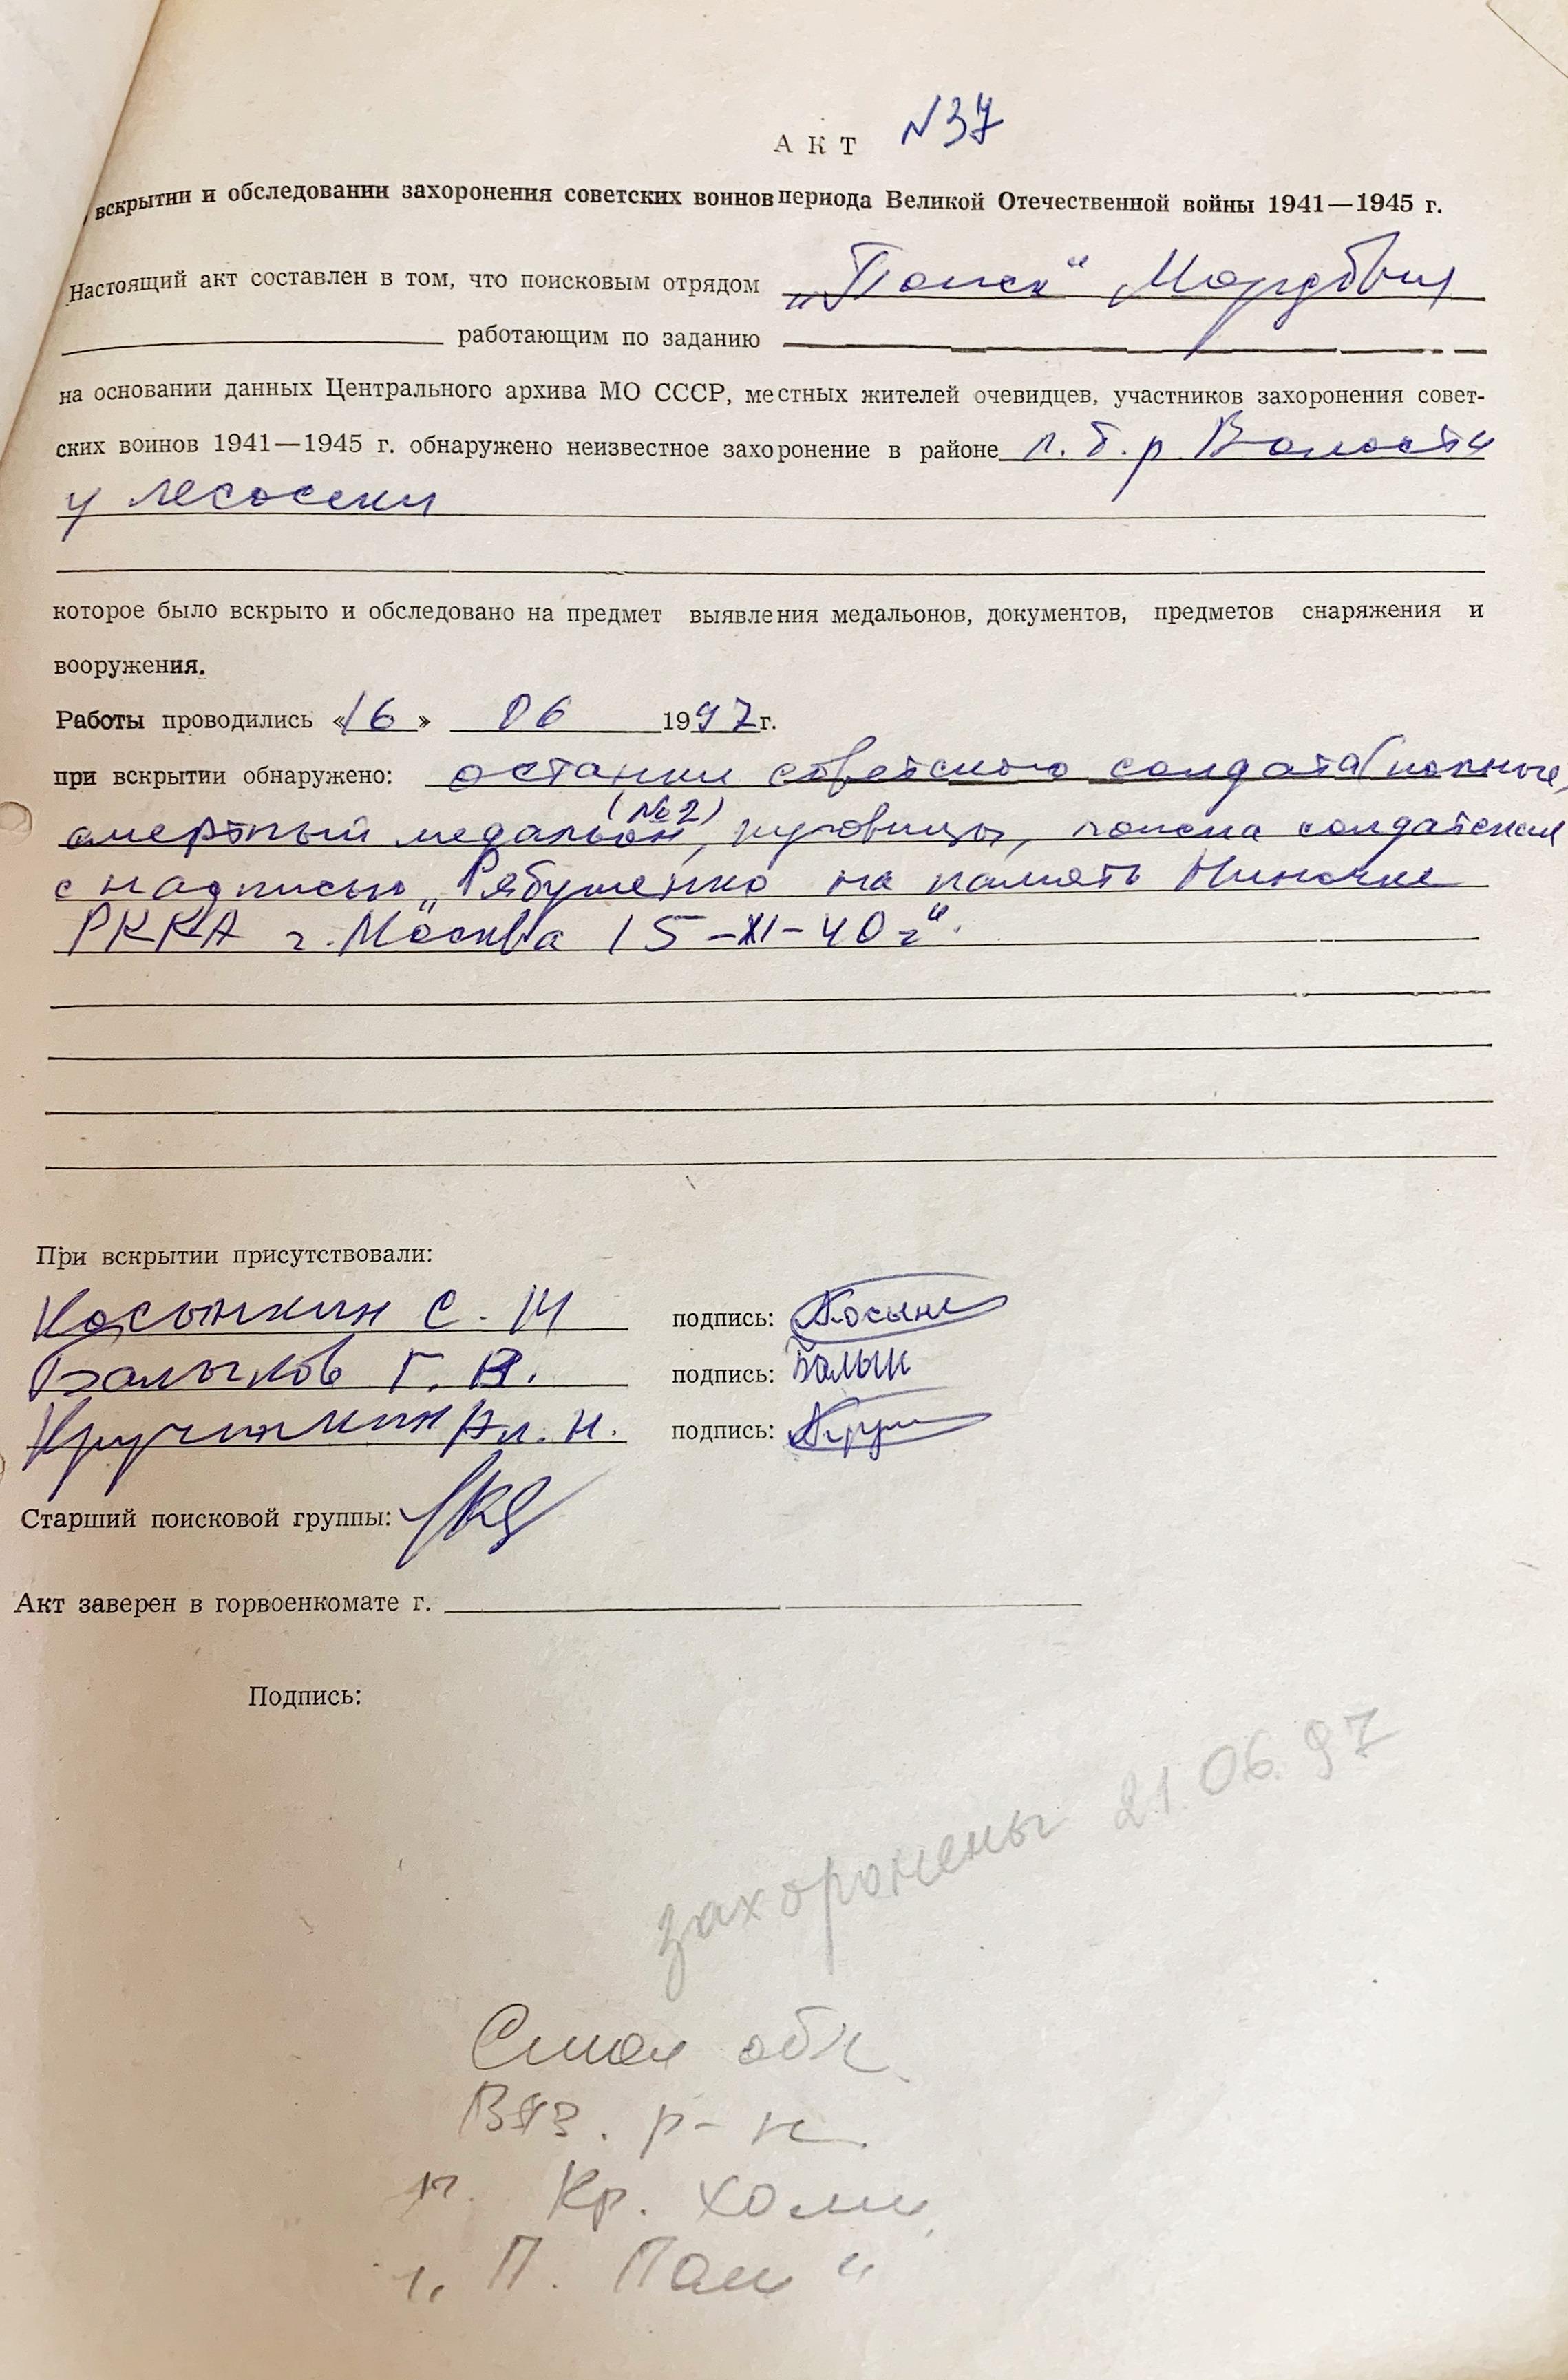 АКТ N37
вскрытии и обследовании захоронения советских воинов периода Великой Отечественной войны 1941—1945 г.
Настоящий акт составлен в том, что поисковым отрядом „Поиск“ Мордовия
работающим по заданию
на основании данных Центрального архива МО СССР, местных жителей очевидцев, участников захоронения совет-
ских воинов 1941—1945 г. обнаружено неизвестное захоронение в районе л. б. р. Волости
у лесосеки
которое было вскрыто и обследовано на предмет выявления медальонов, документов, предметов снаряжения и
вооружения.
Работы проводились «16» 06 1997г.
при вскрытии обнаружено: останки советского солдата (полные,
смертный медальон (№2), пуговицы, солдатская
с надписью „Рябушенко на память Ниночке
РККА г. Москва 15-XI-40г“.
При вскрытии присутствовали:
Косынкин С. М подпись: Косынк
Балыков Г. В. подпись: Балык
Кручинкин Ал. Н. подпись:
Старший поисковой группы:
Акт заверен в горвоенкомате г.
Подпись:
захоронены 21.06.97
Смол обл.
Вяз. р-н.
п. Кр. Холм,
„П. Пам“